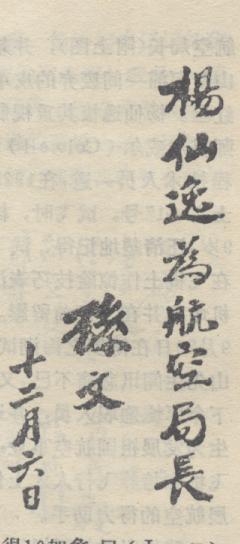 楊仙逸為航空局長
孫文
十二月六日